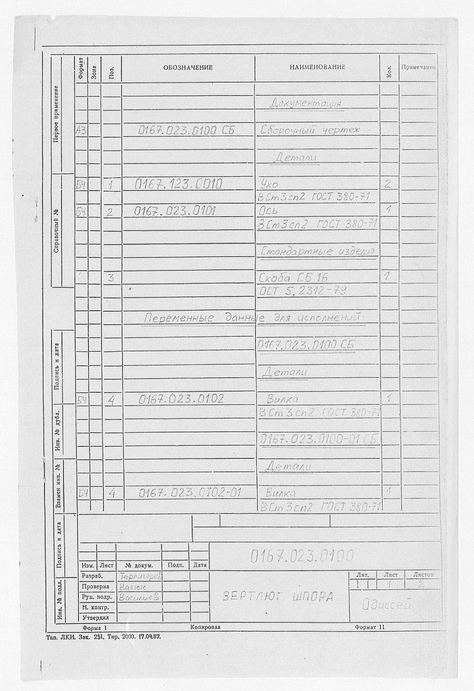 Формат Зона Поз. ОБОЗНАЧЕНИЕ НАИМЕНОВАНИЕ Кол. Примечание
Документация
А3 0167.023.0100 СБ Сборочный чертеж
Детали
БЧ 1 0167.123.0010 Ухо 2
ВСт3сп2 ГОСТ 380-71
БЧ 2 0167.023.0101 Ось 1
ВСт3сп2 ГОСТ 380-71
Стандартные изделия
3 Скоба СБ 16 1
ОСТ 5.2312-79
Переменные данные для исполнений:
0167.023.0100 СБ
Детали
БЧ 4 0167.023.0102 Вилка 1
ВСт3сп2 ГОСТ 380-71
0167.023.0100-01 СБ
Детали
БЧ 4 0167.023.0102-01 Вилка 1
ВСт3сп2 ГОСТ 380-71
Первое применение
Справочный №
Подпись и дата
Инв. № дубл.
Взамен инв. №
Подпись и дата
Инв. № подл.
0167.023.0100
Изм. Лист № докум. Подп. Дата
Разраб.
Проверил
Рук. подр. Васильев
Н. контр.
Утвердил
ВЕРТЛЮГ ШПОРА
Лит. Лист Листов
1
Одиссей
Форма 1 Копировал Формат 11
Тип. ЛКИ. Зак. 251. Тир. 2000. 17.04.82.